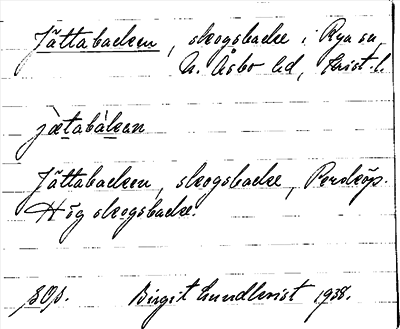 Jättabacken, skogsbacke i Rya sn,
N. Åsbo hd, Krist. l.
jätabàkan
Jättabacken, skogsbacke, Perstorp.
Hög skogsbacke.
Birgit Lundkvist 1938.